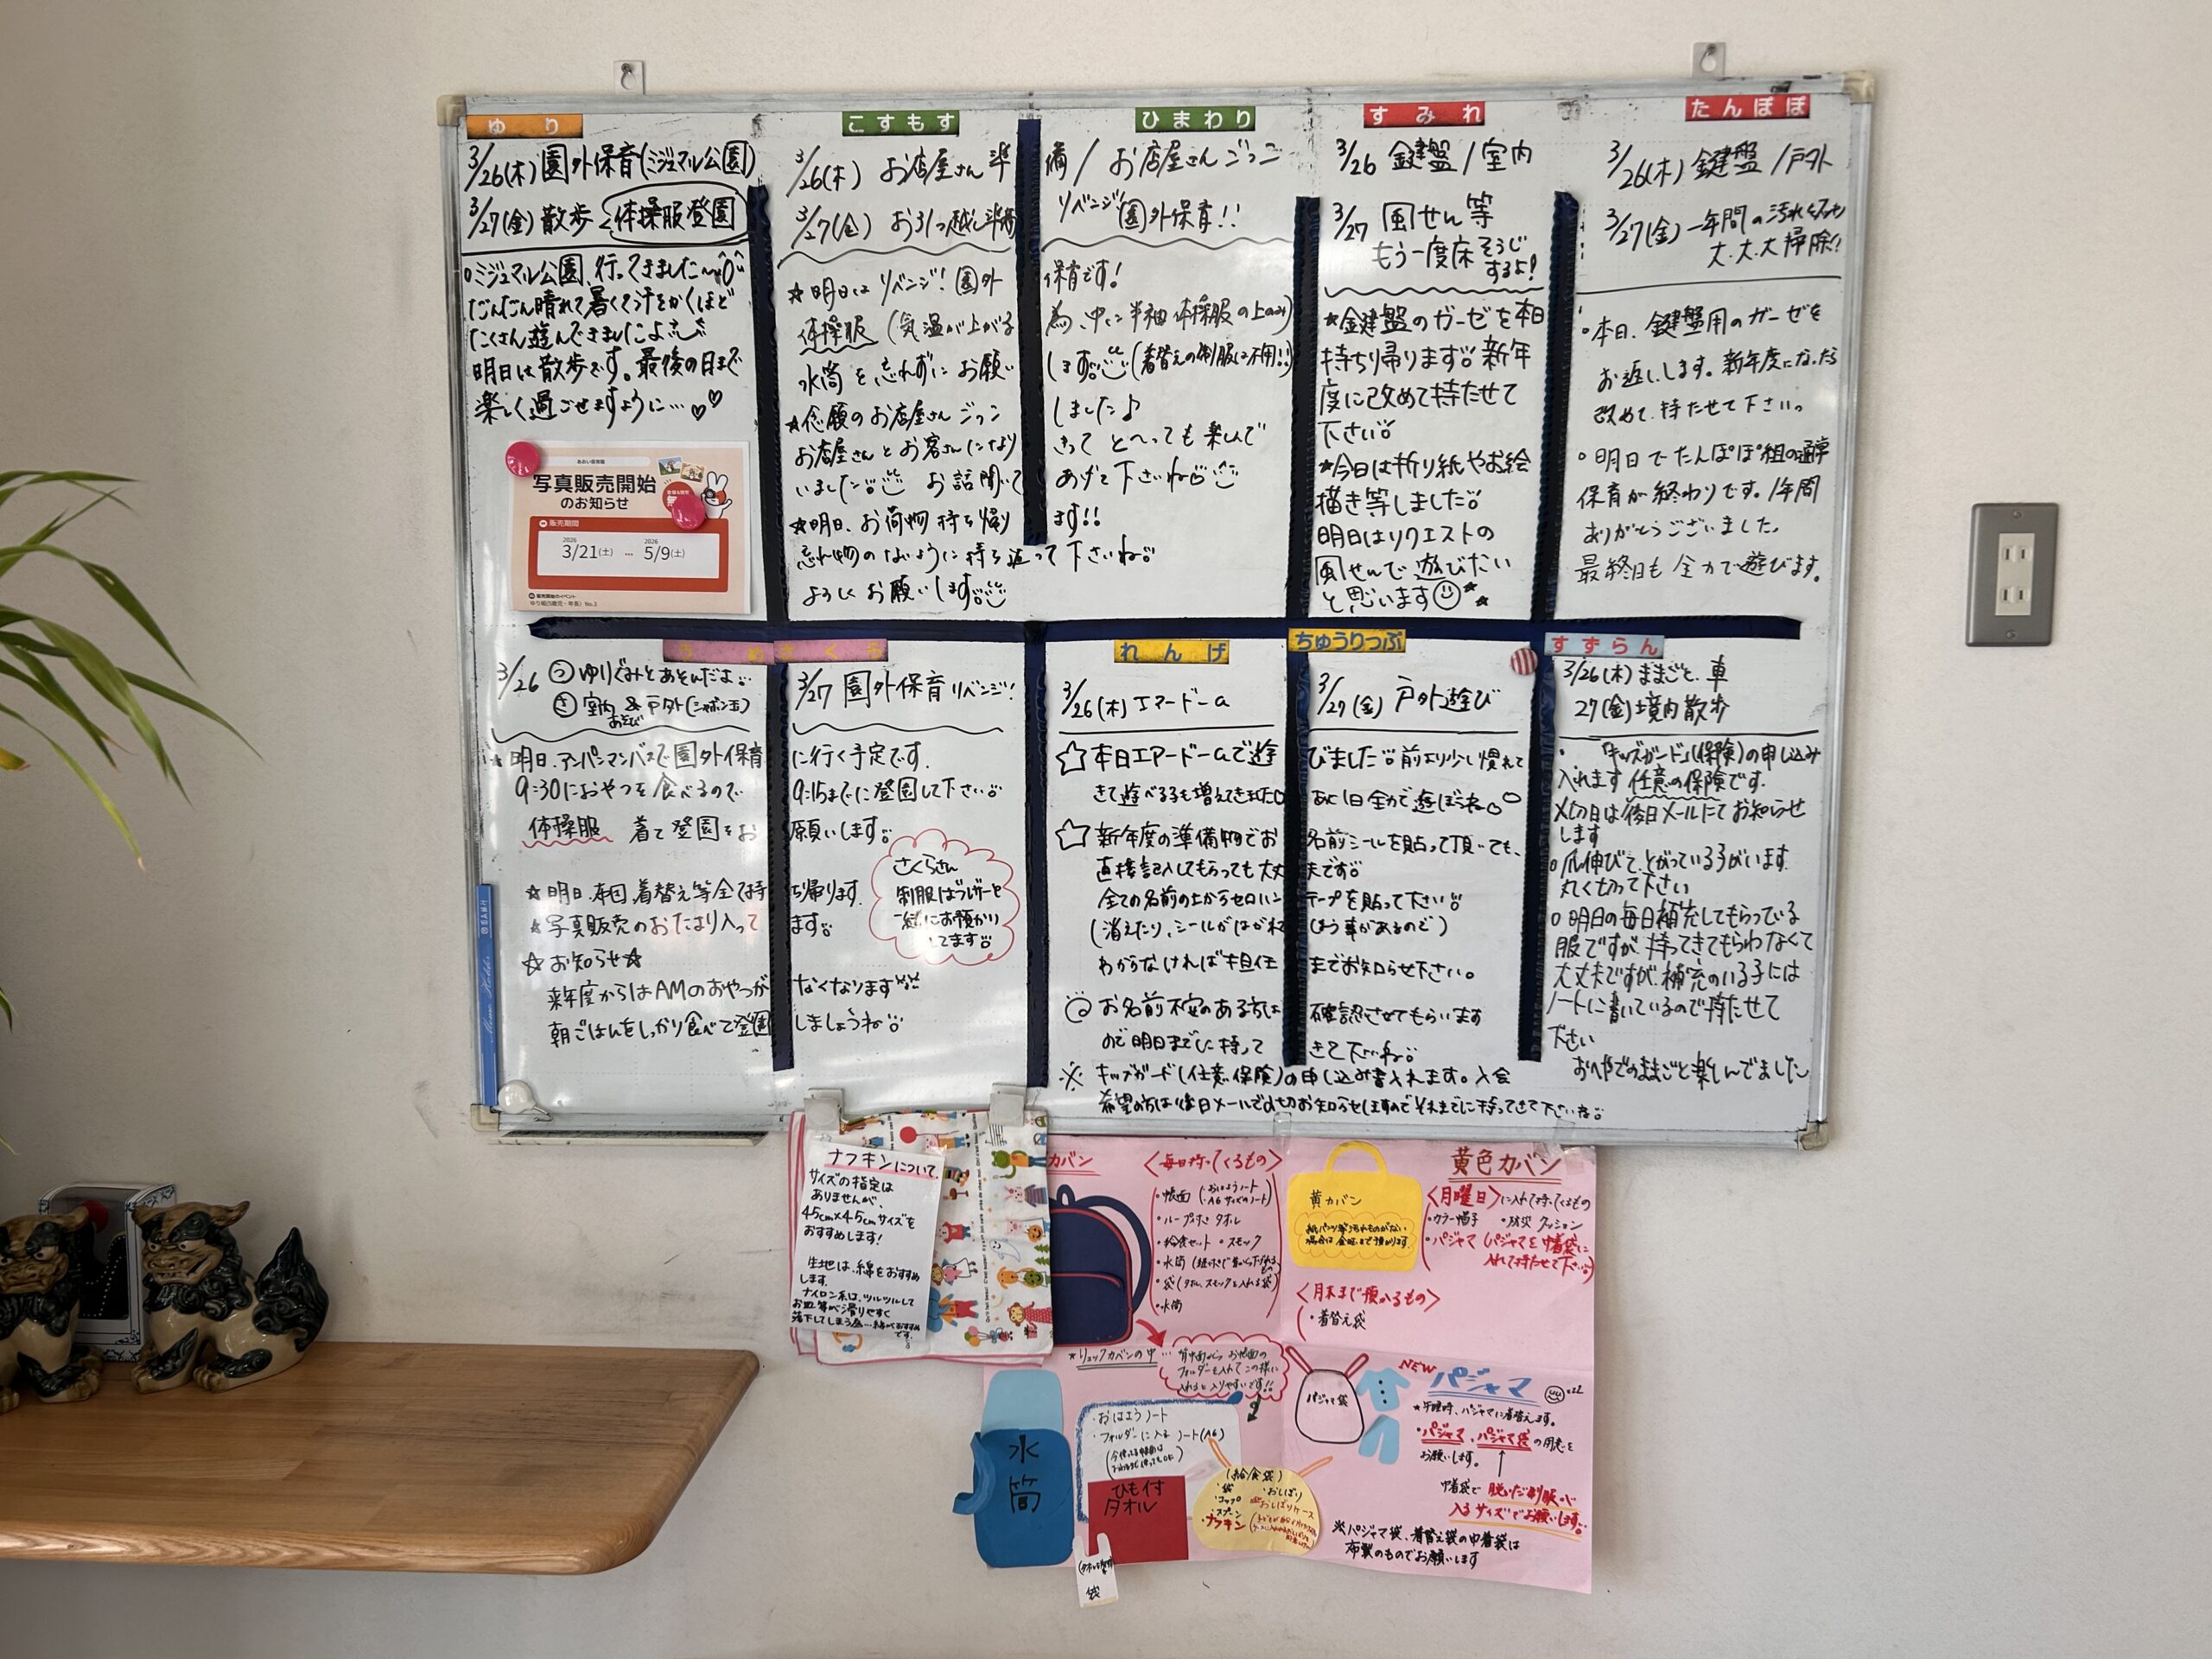 ゆり
3/26(木) 園外保育(ミジュマル公園)
3/27(金) 散歩 体操服登園
ミジュマル公園、行ってきました〜
だんだん晴れて暑くて汗をかくほど
たくさん遊んできましたよ
明日は散歩です。最後の日まで
楽しく過ごせますように…♡♡
あおい保育園
写真販売開始
のお知らせ
販売期間
2026
3/21(土) … 
2026
5/9(土)
販売開始のイベント
ゆり組(5歳児・年長) No.3
こすもす
ひまわり
3/26(木) お店屋さん準備/お店屋さんごっこ
3/27(金) お引っ越し準備 リベンジ園外保育!!
★明日はリベンジ!園外保育です!
体操服(気温が上がる為、中に半袖体操服の上のみ)
水筒を忘れずにお願いします(着替えの制服は不用!!)
★念願のお店屋さんごっこしました♪
お店屋さんとお客さんになりきって とーっても楽しんで
いました お話聞いてあげて下さいね
★明日、お荷物持ち帰ります!!
忘れ物のないように持ち返って下さいね
よろしくお願いします
すみれ
3/26 鍵盤/室内
3/27 風せん等
もう一度床そうじ
するよ!
★鍵盤のガーゼを本日
持ちり帰ります 新年
度に改めて持たせて
下さい
★今日は折り紙やお絵
描き等しました
明日はリクエストの
風せんで遊びたい
と思います
たんぽぽ
3/26(木) 鍵盤/戸外
3/27(金) 一年間の汚れを
大.大.大掃除!!
本日、鍵盤用のガーゼを
お返しします。新年度になったら
改めて、持たせて下さい。
明日でたんぽぽ組の通常
保育が終わりです。1年間
ありがとうございました。
最終日も全力で遊びます。
うめ さくら
3/26 う ゆりぐみとあそんだよ
さ 室内あそび & 戸外(シャボン玉)
3/27 園外保育 リベンジ!
★明日、アンパンマンバスで園外保育に行く予定です。
9:30におやつを食べるので 9:15までに登園して下さい
体操服 着て登園をお願いします
さくらさん
制服はブレザーと
一緒にお預かり
してます
★明日、布団、着替え等全て持ち帰ります。
★写真販売のおたより入ってます
☆お知らせ☆
来年度からはAMのおやつがなくなります
朝ごはんをしっかり食べて登園しましょうね
れんげ
ちゅうりっぷ
3/26(木) エアードーム
3/27(金) 戸外遊び
☆本日エアードームで遊びました 前より少し慣れて
きて遊べる子も増えてきました あと1日全力で遊ぼうね
☆新年度の準備物でお名前シールを貼って頂いても、
直接記入してもらっても大丈夫です
全ての名前の上からセロハンテープを貼って下さい
(消えたり、シールがはがれちゃう事があるので)
わからなければ担任までお知らせ下さい。
お名前不安のある方は確認させてもらいます
ので明日までに持ってきて下さいね
※ キッズガード(任意保険)の申し込み書入れます。入会
希望の方は後日メールで〆切お知らせしますのでそれまでに持ってきて下さいね
すずらん
3/26(木) ままごと、車
27(金) 境内散歩
「キッズガード」(保険)の申し込み
入れます 任意の保険です。
〆切日は後日メールにてお知らせ
します
爪伸びて、とがっている子がいます。
丸く切って下さい
明日の毎日補充してもらっている
服ですが、持ってきてもらわなくて
大丈夫ですが、補充のいる子には
ノートに書いているので持たせて
下さい
おへやでのままごと楽しんでました
ナフキンについて
サイズの指定は
ありませんが、
45cm×45cmサイズを
おすすめします!
生地は、綿をおすすめ
します。
ナイロン系は、ツルツルして
お皿等が滑りやすく
落下してしまう為…綿がおすすめ
です。
カバン
<毎日持ってくるもの>
・帳面(・おはようノート
・A6サイズのノート)
・ループ付き タオル
・給食セット ・スモック
・袋(タオル、スモックを入れる袋)
・水筒
★リュックカバンの中…
背中側から お帳面の
フォルダーを入れて この様に
入れると入りやすいです!!
・おはようノート
・フォルダーに入るノート(A6)
水筒
ひも付
タオル
袋
(給食袋)
・袋
・コップ
・スプーン
・ナフキン
・おしぼり
おしぼりケース
黄色カバン
黄カバン
<月曜日>に入れて持ってくるもの
・カラー帽子 ・防災クッション
・パジャマ(パジャマを巾着袋に
入れて持たせて下さい)
<月末まで預かるもの>
・着替え袋
パジャマ袋
NEW パジャマ
★午睡時、パジャマに着替えます。
・パジャマ、パジャマ袋の用意を
お願いします。
巾着袋で 脱いだ制服が
入るサイズでお願いします。
※パジャマ袋、着替え袋の巾着袋は
布製のものでお願いします